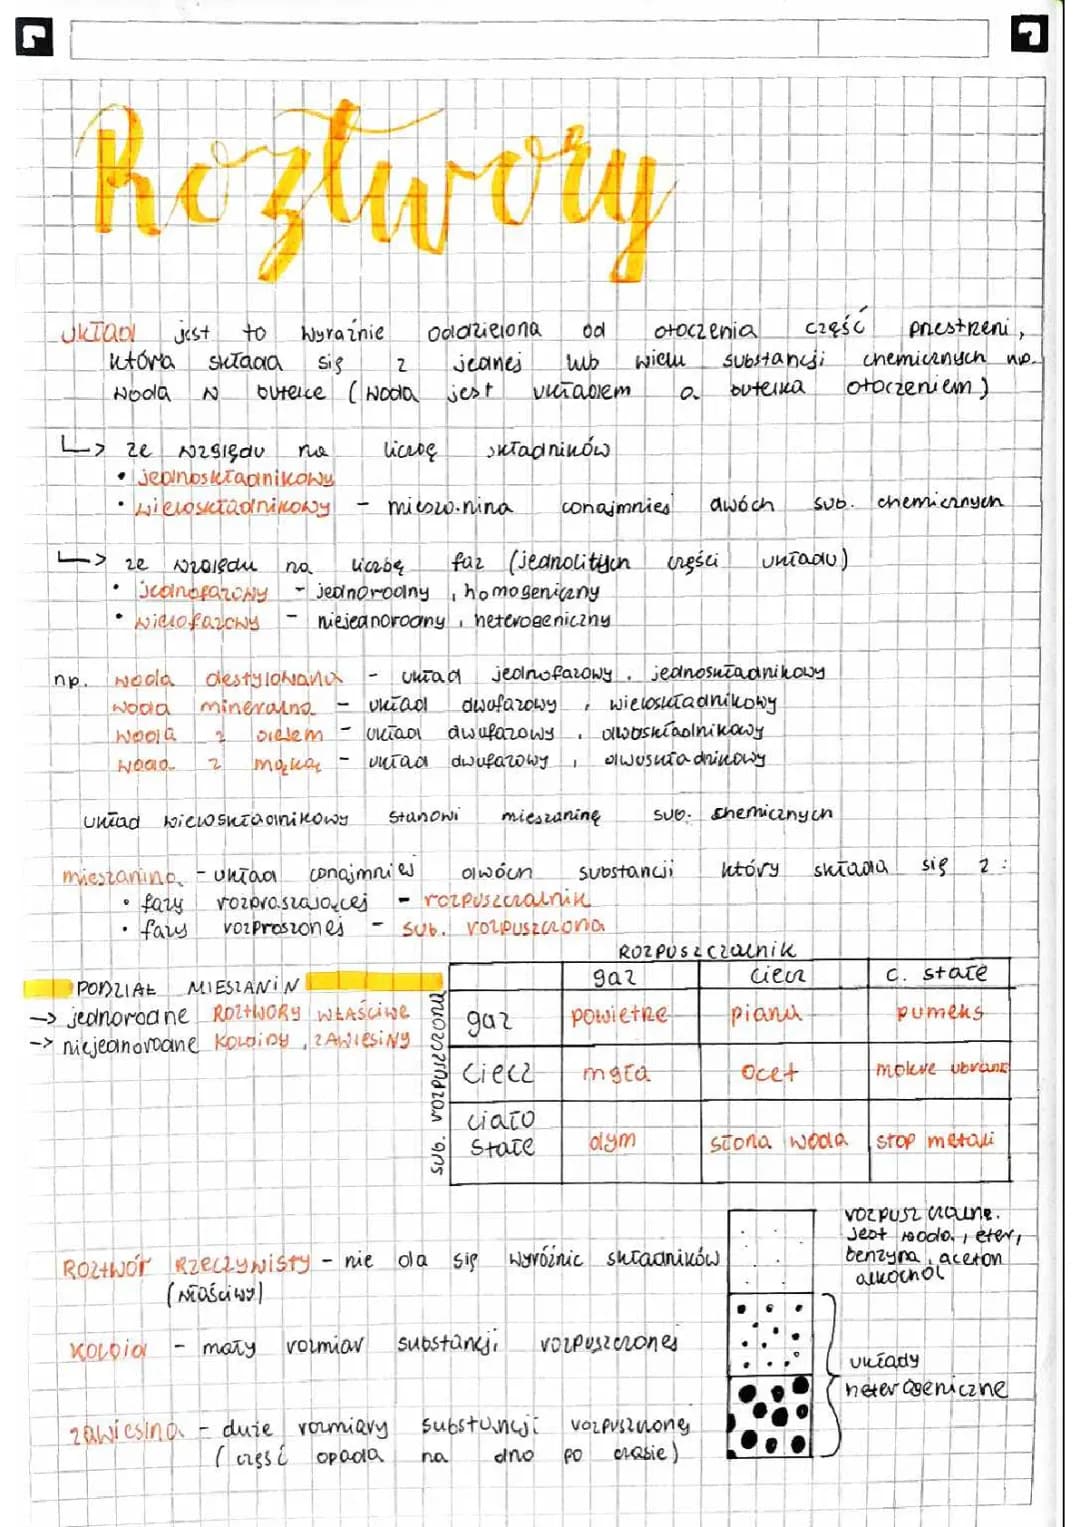 Roztwory
układ jest to wyraźnie oddzielona od otoczenia część przestrzeni,
która składa się z jednej lub wielu substancji chemicznych np.
woda w butelce (woda jest układem a butelka otoczeniem)
↳ ze względu na liczbę składników
• jednoskładnikowy
• wieloskładnikowy - mieszanina conajmniej dwóch sub. chemicznych
↳ ze względu na liczbę faz (jednolitych części układu)
• jednofazowy - jednorodny, homogeniczny
• wielofazowy - niejednorodny, heterogeniczny
np. woda destylowana - układ jednofazowy, jednoskładnikowy
woda mineralna - układ dwufazowy, wieloskładnikowy
woda z olejem - układ dwufazowy, dwuskładnikowy
woda z mąką - układ dwufazowy, dwuskładnikowy
układ wieloskładnikowy stanowi mieszaninę sub. chemicznych
mieszanina - układ conajmniej dwóch substancji który składa się z:
• fazy rozpraszającej - rozpuszczalnik
• fazy rozproszonej - sub. rozpuszczona
PODZIAŁ MIESZANIN
→ jednorodne ROZTWORY WŁAŚCIWE
→ niejednorodne KOLOIDY, ZAWIESINY
ROZPUSZCZALNIK
gaz ciecz c. stałe
sub. rozpuszczona
gaz powietrze piana pumeks
ciecz mgła ocet mokre ubranie
ciało
stałe dym słona woda stop metali
rozpuszczalne.
jest woda, eter,
benzyna, aceton
alkochol
ROZTWÓR RZECZYWISTY - nie da się wyróżnić składników
(właściwy)
KOLOID - mały rozmiar substancji rozpuszczonej
układy
heterogeniczne
zawiesina - duże rozmiary substancji rozpuszczonej
(część opada na dno po czasie)